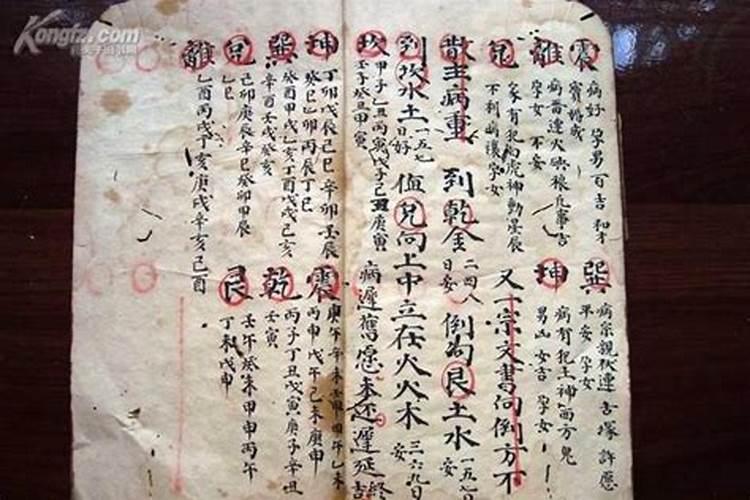 震
病好 孕男 百吉 和才
實婚成
離
病苗連火
孕女 不安
兌
家有犯
不利
巽
病宗親
平安 孕女
古塚許愿
坤
病有犯土神西方鬼
男凶女吉 孕女
又一宗文書向倒方不
散主病重 到乾金 二四八日安 倒向艮土水 一五七日安
到坎水土 一五七日好 值兌向上中立在火火木 三六九日安
病遲舊愿未还遲延
坎
甲子乙丑丙寅戊子己丑庚寅
壬子癸丑甲寅
坤
丁卯戊辰己巳辛卯壬辰
癸巳乙卯丙辰丁巳
震
庚午辛未壬申甲午乙未
丙申戊午己未庚申
巽
癸酉甲戌乙亥丁酉戊戌己亥
辛酉壬戌癸亥
乾
丙子丁丑戊寅庚子辛
壬寅
兌
己卯庚辰辛巳癸卯甲辰
乙巳
艮
壬午癸未甲申丙午
丁未戊申
離
乙酉丙戌丁亥庚戌辛亥己酉
Kongfz.com